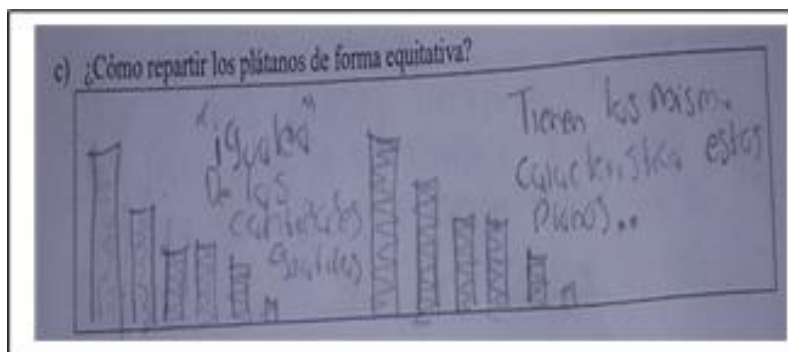 c) ¿Cómo repartir los plátanos de forma equitativa?
"iguales"
De las
cantidades
iguales
Tienen las mism.
caracteristica estos
planos..